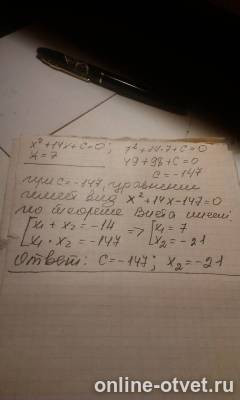 x² + 14x + C = 0; 7² + 14·7 + C = 0
x = 7 49 + 98 + C = 0
C = -147
при C = -147, уравнение
имеет вид x² + 14x - 147 = 0
по теореме Виета имеем:
[x₁ + x₂ = -14 => [x₁ = 7
[x₁ · x₂ = -147 [x₂ = -21
Ответ: C = -147; x₂ = -21
online-otvet.ru